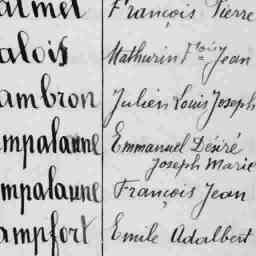 almet François Pierre
alois Mathurin Fçois Jean
ambron Julien Louis Joseph
mpalaune Emmanuel Désiré
Joseph Marie
mpalaune François Jean
ampfort Emile Adalbert